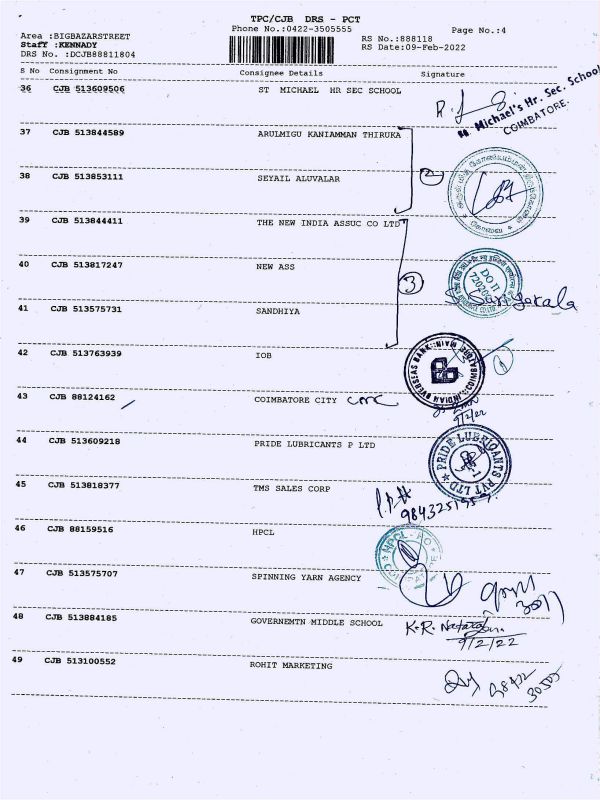 TPC/CJB DRS - PCT
Phone No.:0422-3505555
Page No.:4
Area :BIGBAZARSTREET
Staff :KENNADY
DRS No. :DCJB88811804
RS No.:888118
RS Date:09-Feb-2022
S No Consignment No Consignee Details Signature
36 CJB 513609506 ST MICHAEL HR SEC SCHOOL
Michael's Hr. Sec. School
COIMBATORE.
37 CJB 513844589 ARULMIGU KANIAMMAN THIRUKA
38 CJB 513853111 SEYAIL ALUVALAR
2
39 CJB 513844411 THE NEW INDIA ASSUC CO LTD
40 CJB 513817247 NEW ASS
3
DO II
41 CJB 513575731 SANDHIYA
42 CJB 513763939 IOB
1
INDIAN OVERSEAS BANK
43 CJB 88124162 COIMBATORE CITY CMC
9/2/22
44 CJB 513609218 PRIDE LUBRICANTS P LTD
PRIDE LUBRICANTS PVT LTD
45 CJB 513818377 TMS SALES CORP
46 CJB 88159516 HPCL
HPCL
47 CJB 513575707 SPINNING YARN AGENCY
48 CJB 513884185 GOVERNEMTN MIDDLE SCHOOL
K.R.
9/2/22
49 CJB 513100552 ROHIT MARKETING